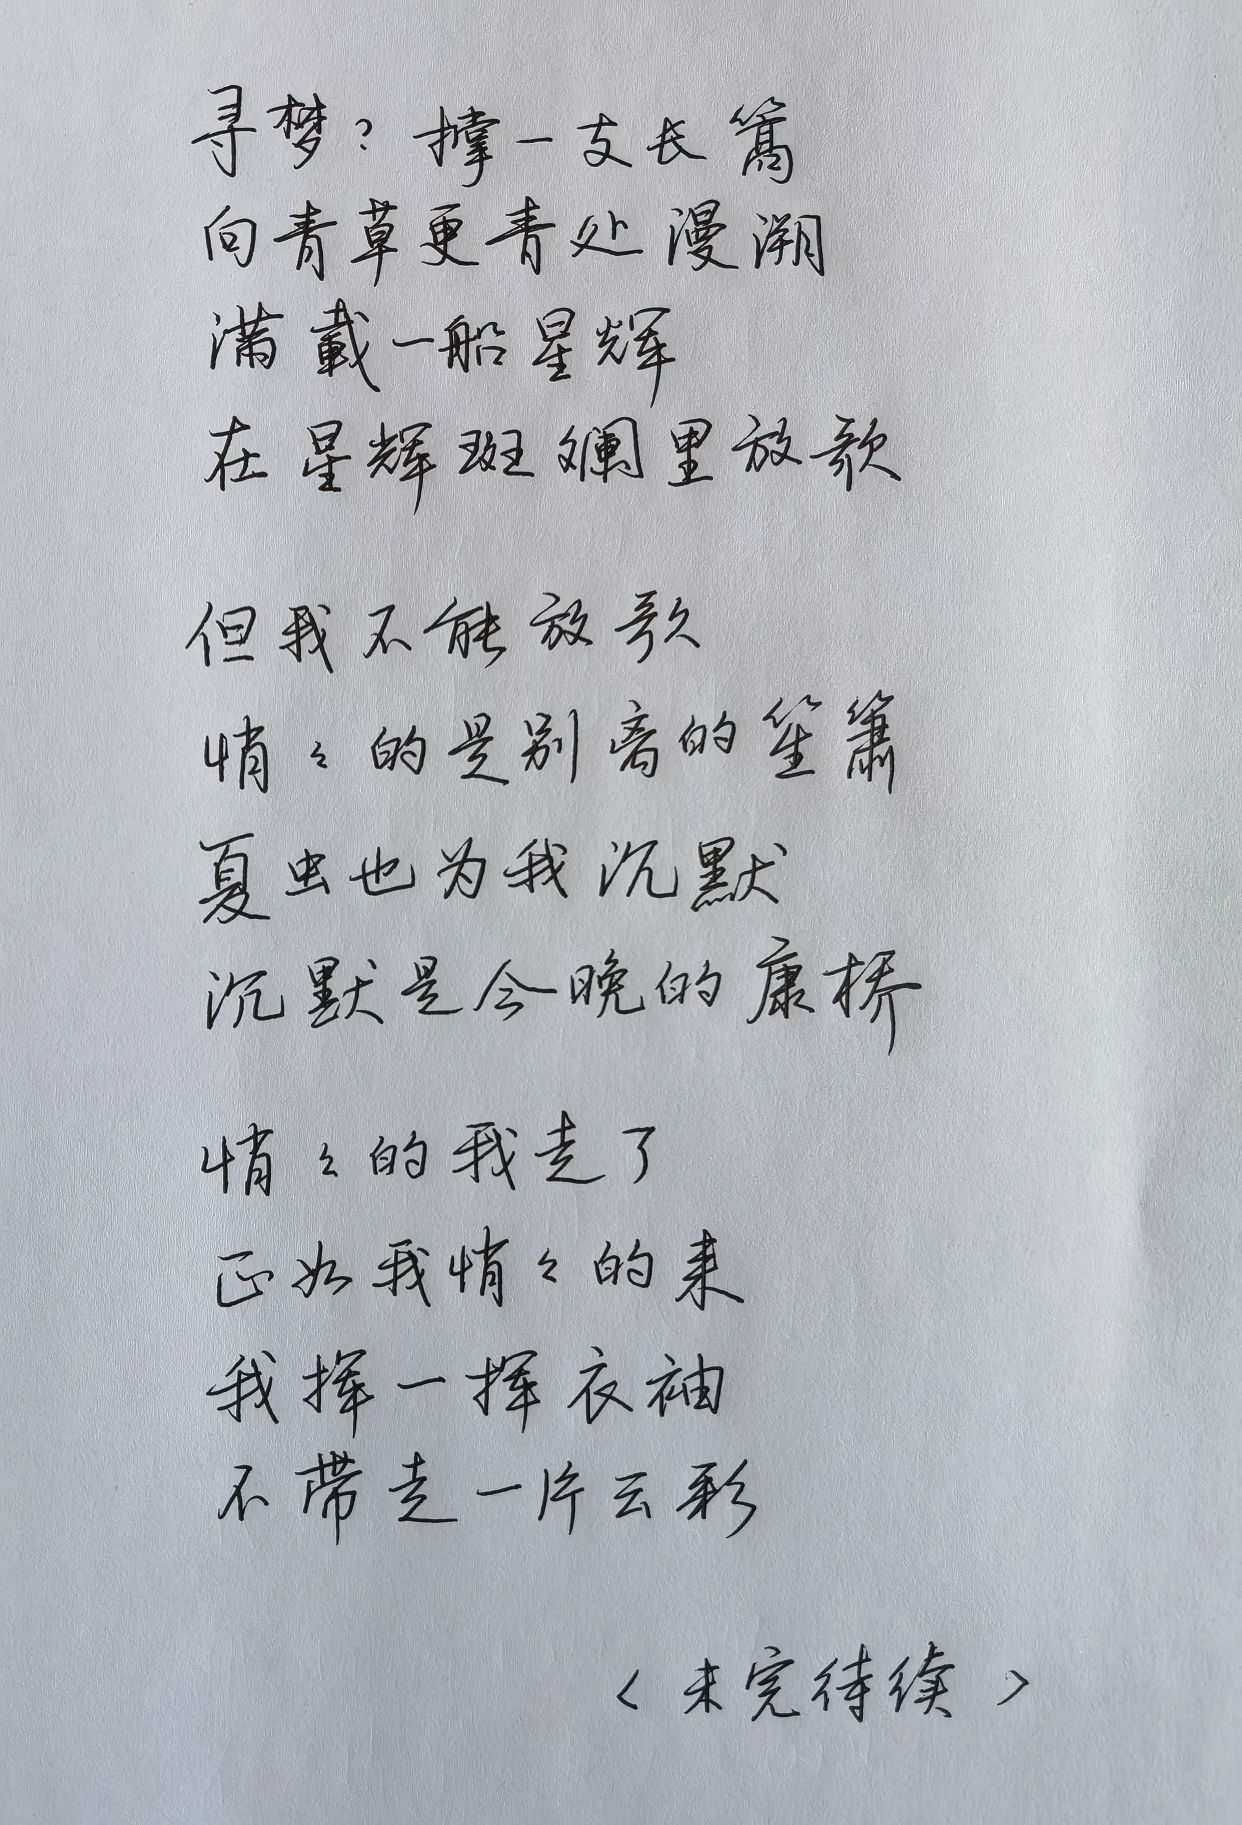 寻梦？撑一支长篙
向青草更青处漫溯
满载一船星辉
在星辉斑斓里放歌
但我不能放歌
悄々的是别离的笙箫
夏虫也为我沉默
沉默是今晚的康桥
悄々的我走了
正如我悄々的来
我挥一挥衣袖
不带走一片云彩
〈未完待续〉